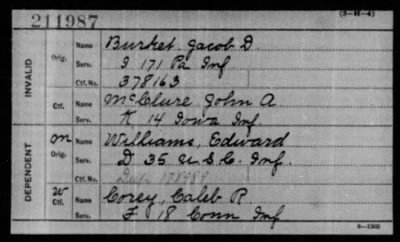 (3-H-4)
211987
INVALID
Orig.
Name Burket Jacob D.
Serv. I 171 Pa Inf
Ctf. No. 378163
Ctf.
Name McClure, John A
Serv. K 14 Iowa Inf
DEPENDENT
M Orig.
Name Williams, Edward
Serv. D 35 U.S.C. Inf.
Ctf. No. 178989
W Ctf.
Name Corey, Caleb R.
Serv. F 18 Conn Inf